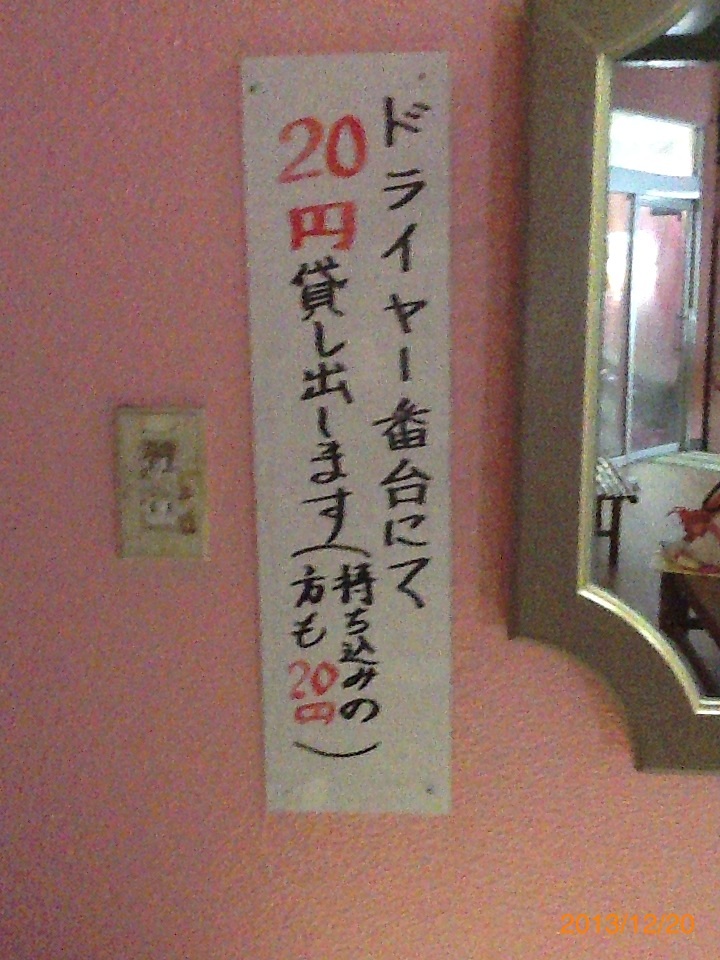 ドライヤー番台にて
20円貸し出します(持ち込みの
方も20円)
2013/12/20